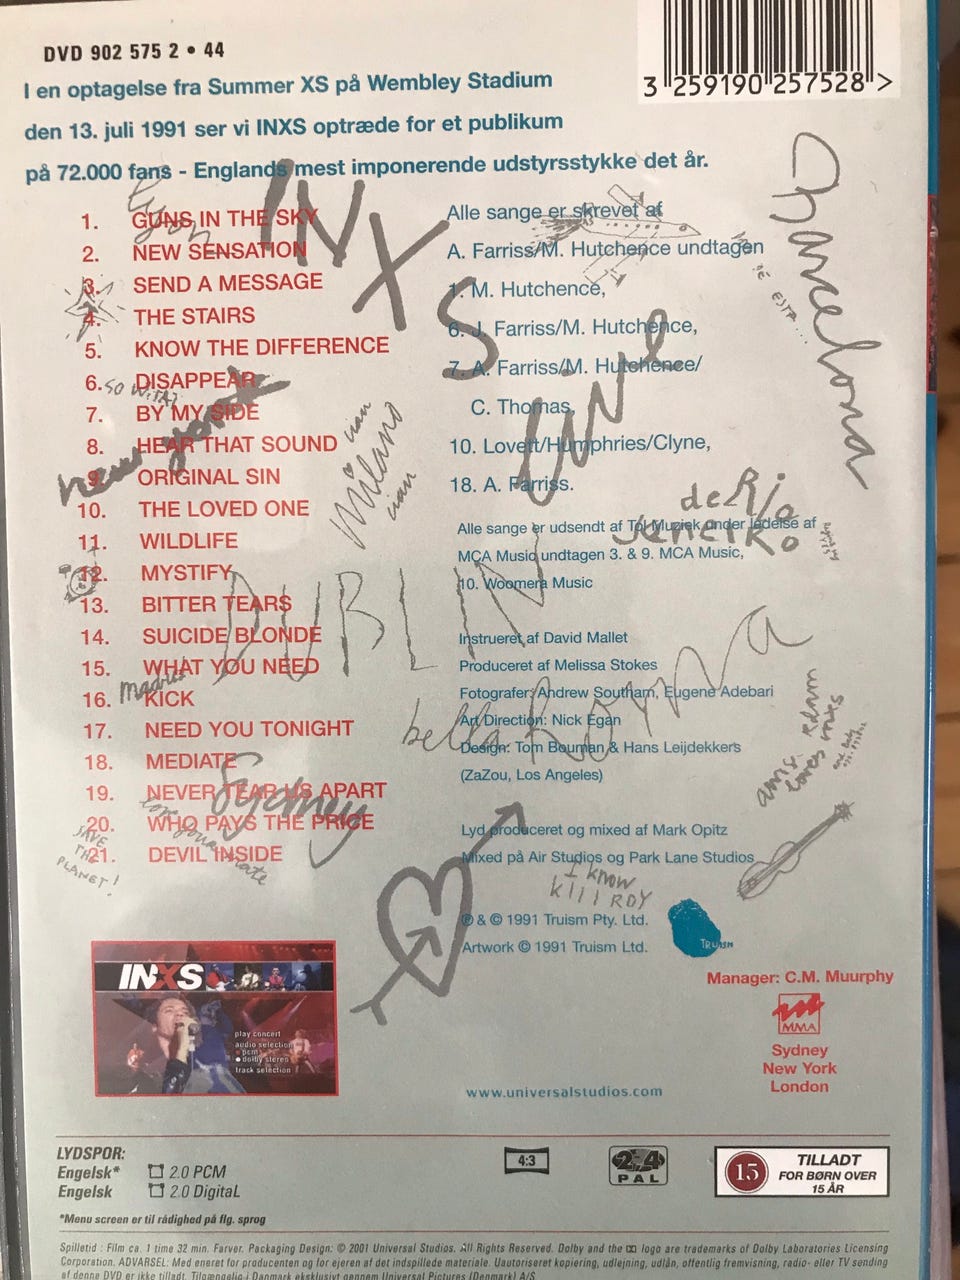 DVD 902 575 2 • 44
3 259190 257528 >
I en optagelse fra Summer XS på Wembley Stadium
den 13. juli 1991 ser vi INXS optræde for et publikum
på 72.000 fans - Englands mest imponerende udstyrsstykke det år.
1. GUNS IN THE SKY
2. NEW SENSATION
3. SEND A MESSAGE
4. THE STAIRS
5. KNOW THE DIFFERENCE
6. DISAPPEAR
7. BY MY SIDE
8. HEAR THAT SOUND
9. ORIGINAL SIN
10. THE LOVED ONE
11. WILDLIFE
12. MYSTIFY
13. BITTER TEARS
14. SUICIDE BLONDE
15. WHAT YOU NEED
16. KICK
17. NEED YOU TONIGHT
18. MEDIATE
19. NEVER TEAR US APART
20. WHO PAYS THE PRICE
21. DEVIL INSIDE
Alle sange er skrevet af
A. Farriss/M. Hutchence undtagen
1. M. Hutchence,
6. J. Farriss/M. Hutchence,
7. A. Farriss/M. Hutchence/
C. Thomas,
10. Lovett/Humphries/Clyne,
18. A. Farriss.
Alle sange er udsendt af Tol Muziek under ledelse af
MCA Music undtagen 3. & 9. MCA Music,
10. Woomera Music
Instrueret af David Mallet
Produceret af Melissa Stokes
Fotografer: Andrew Southam, Eugene Adebari
Art Direction: Nick Egan
Design: Tom Bouman & Hans Leijdekkers
(ZaZou, Los Angeles)
Lyd produceret og mixed af Mark Opitz
Mixed på Air Studios og Park Lane Studios
℗ & © 1991 Truism Pty. Ltd.
Artwork © 1991 Truism Ltd.
TRUISM
INXS
LIVE
Lyon
Barcelona
new york
Milano
ciao
ciao
de Rio
Janeiro
DUBLIN
madrid
bella Roma
amsterdam
loves inxs
Sydney
love you mate
SAVE
THE
PLANET!
I know
killroy
Manager: C.M. Muurphy
MMA
Sydney
New York
London
INXS
play concert
audio selection
pcm
dolby stereo
track selection
www.universalstudios.com
LYDSPOR:
Engelsk* 2.0 PCM
Engelsk 2.0 DigitaL
4:3
2 4
PAL
15
TILLADT
FOR BØRN OVER
15 ÅR
*Menu screen er til rådighed på flg. sprog
Spilletid : Film ca. 1 time 32 min. Farver. Packaging Design: © 2001 Universal Studios. All Rights Reserved. Dolby and the logo are trademarks of Dolby Laboratories Licensing
Corporation. ADVARSEL: Med eneret for producenten og for ejeren af det indspillede materiale. Uautoriseret kopiering, udlejning, udlån, offentlig fremvisning, radio- eller TV sending
af denne DVD er ikke tilladt. Tilgængelig i Danmark eksklusivt gennem Universal Pictures (Denmark) A/S